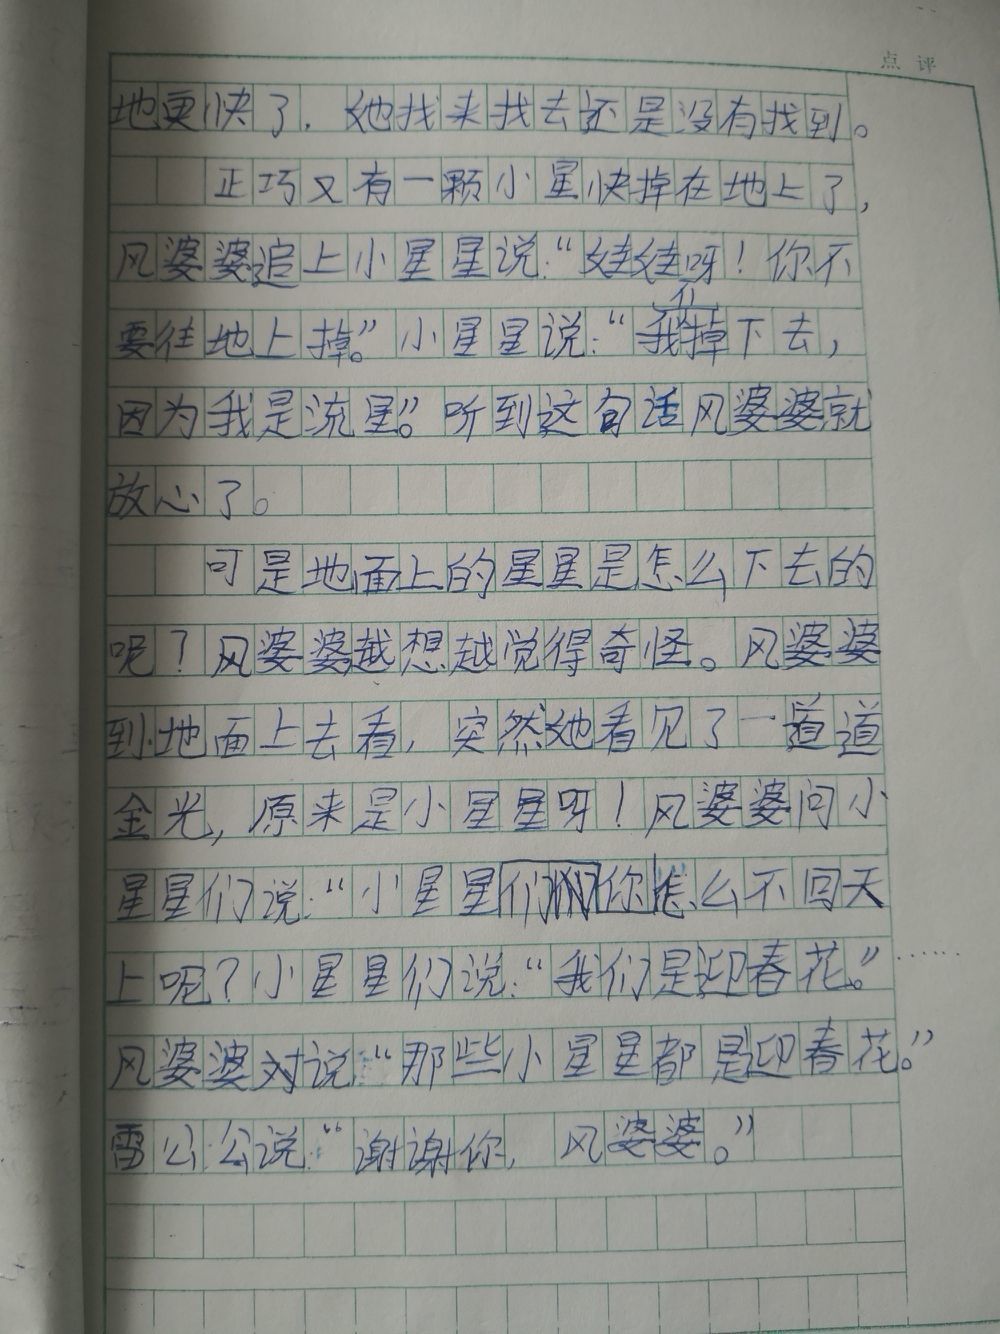 点评
地更快了．她找来找去还是没有找到。
正巧又有一颗小星快掉在地上了，
风婆婆追上小星星说：“娃娃呀！你不
要往地上掉。”小星星说：“我们掉下去，
因为我是流星”。听到这句话风婆婆就
放心了。
可是地面上的星星是怎么下去的
呢？风婆婆越想越觉得奇怪。风婆婆
到地面上去看，突然她看见了一道道
金光，原来是小星星呀！风婆婆问小
星星们说：“小星星你怎么不回天
上呢？小星星们说：“我们是迎春花。”……
风婆婆对说：“那些小星星都是迎春花。”
雷公公说：“谢谢你，风婆婆。”